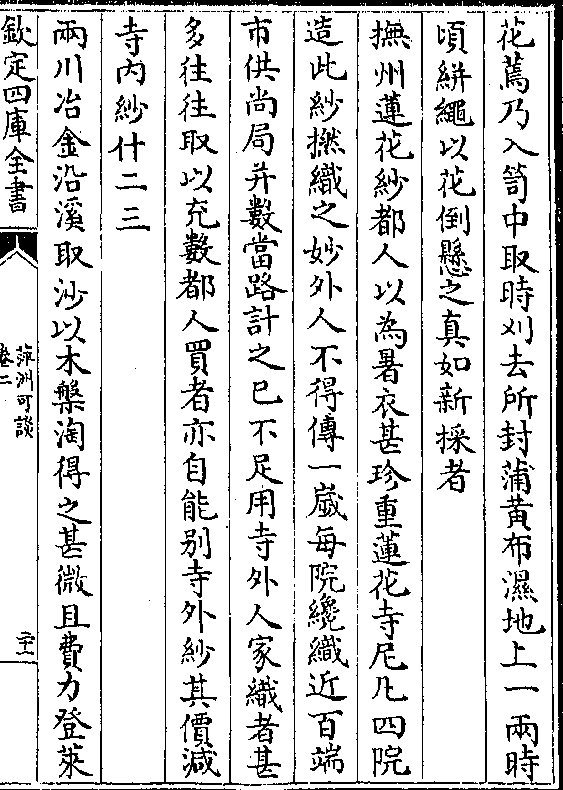 花蔫乃入笥中取時刈去所封蒲黄布濕地上一兩時
頃絣繩以花倒懸之真如新採者
撫州蓮花紗都人以為暑衣甚珍重蓮花寺尼凡四院
造此紗撚織之妙外人不得傳一嵗每院纔織近百端
市供尚局并數當路計之已不足用寺外人家織者甚
多往往取以充數都人買者亦自能别寺外紗其價減
寺内紗什二三
兩川冶金沿溪取沙以木槃淘得之甚微且費力登萊
欽定四庫全書
萍洲可談
卷二
二十一